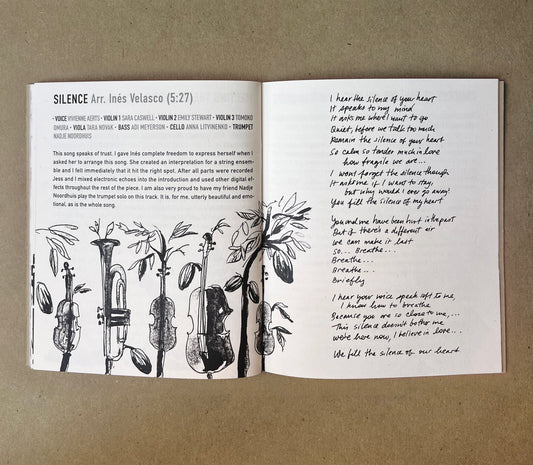 SILENCE Arr. Inés Velasco (5:27)
• VOICE VIVIENNE AERTS • VIOLIN 1 SARA CASWELL • VIOLIN 2 EMILY STEWART • VIOLIN 3 TOMOKO
OMURA • VIOLA TARA NOVAK • BASS ADI MEYERSON • CELLO ANNA LITVINENKO • TRUMPET
NADJE NOORDHUIS
This song speaks of trust. I gave Inés complete freedom to express herself when I
asked her to arrange this song. She created an interpretation for a string ensem-
ble and I fell immediately that it hit the right spot. After all parts were recorded
Jess and I mixed electronic echoes into the introduction and used other digital ef-
fects throughout the rest of the piece. I am also very proud to have my friend Nadje
Noordhuis play the trumpet solo on this track. It is, for me, utterly beautiful and emo-
tional, as is the whole song.
I hear the silence of your heart
It speaks to my mind
It asks me where I want to go
Quiet, before we talk too much
Remain the silence of your heart
So calm so tender much in love
how fragile we are...
I won't forget the silence though
It asks me if I want to stay,
but why would I ever go away?
You fill the silence of my heart
You and me have been hurt in the past
But if there's a different air
we can make it last
so... Breathe...
Breathe...
Breathe...
Briefly
I hear your voice speak soft to me,
I know how to breathe
Because you are so close to me,...
This silence doesn't bother me
we're here now, I believe in love...
We fill the silence of our heart